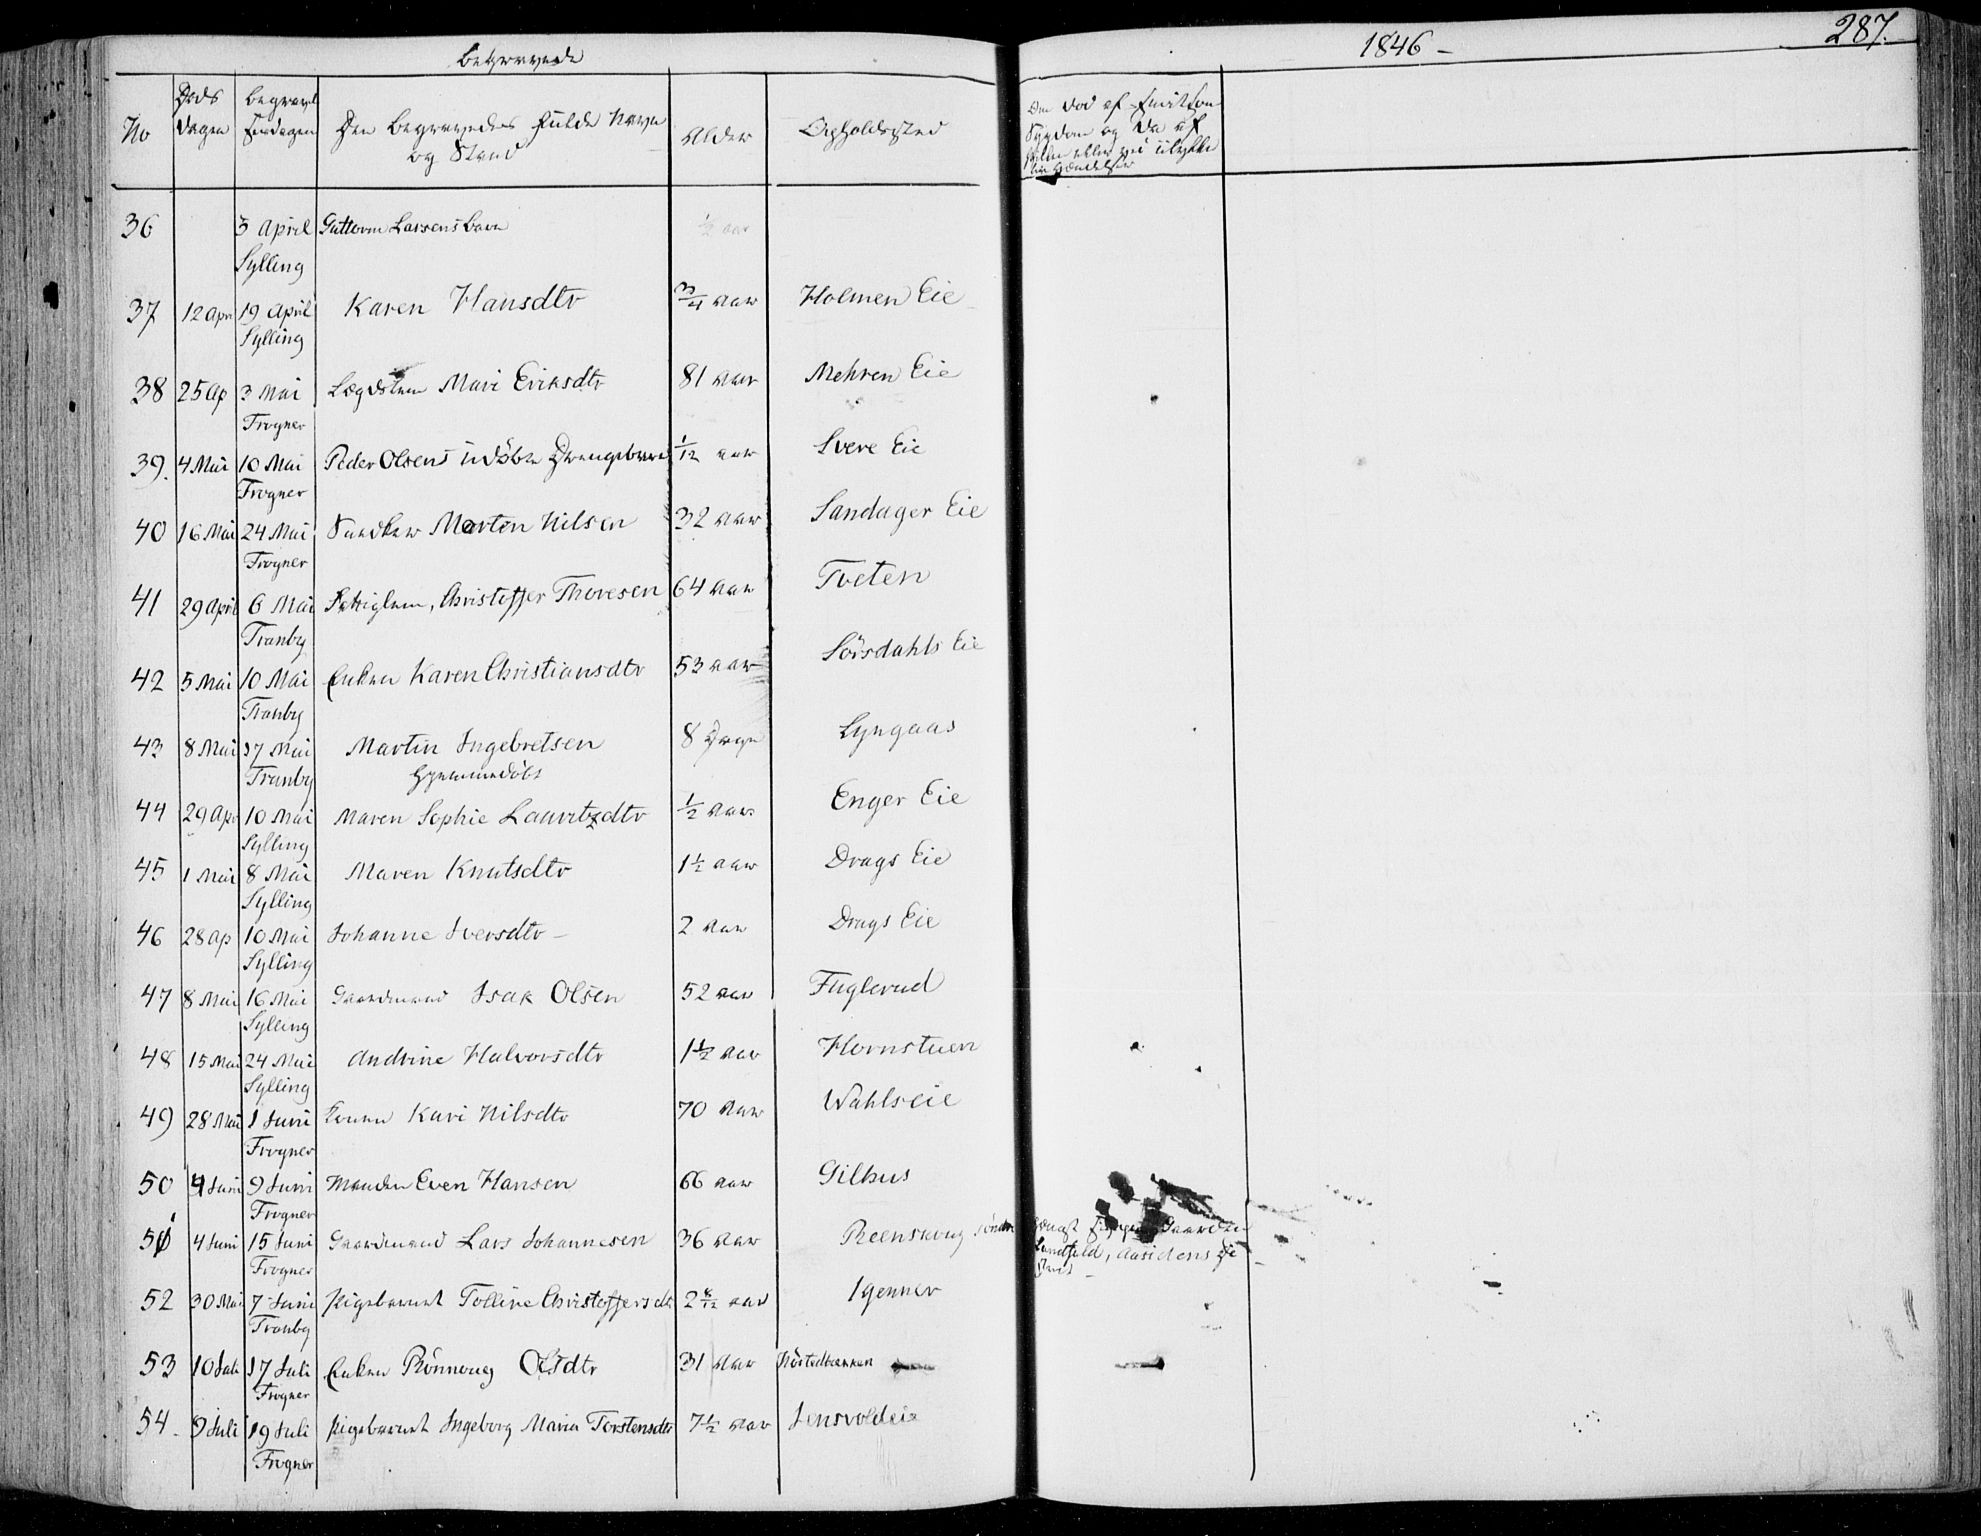 Begravede
1846 -
287.
No
Døds Dagen
Begravelsesdagen
Den Begravedes fulde Navn og Stand
Alder
Opholdssted
Om død af Smitsom
Sygdom og da af
hvilken eller ved ulykke
lig Hændelse
36 3 April Guttorm Larsens Barn ½ aar
Sylling
37 12 Apr 19 April Karen Hansdtr ¾ aar Holmen Eie
Sylling
38 25 Ap 3 Mai Lægdslem Mari Eriksdtr 81 aar Mehren Eie
Frogner
39. 4 Mai 10 Mai Peder Olsens udøbte Drengebarn 1/12 aar Svere Eie
Frogner
40 16 Mai 24 Mai Morten Nilsen 32 aar Sandager Eie
Frogner
41 29 April 6 Mai Fattiglem, Christoffer Thoresen 64 aar Tveten
Tranby
42 5 Mai 10 Mai Enken Karen Christiansdtr 53 aar Sörsdahls Eie
Tranby
43 8 Mai 17 Mai Martin Ingebretsen 8 Dage Lyngaas
Tranby Hjemmedøbt
44 29 Apr 10 Mai Maren Sophie Lauritzdtr ½ aar Enger Eie
Sylling
45 1 Mai 8 Mai Maren Knutsdtr 1½ aar Drags Eie
Sylling
46 28 Ap 10 Mai Johanne Iversdtr - 2 aar Drags Eie
Sylling
47 8 Mai 16 Mai Gaardmand Isak Olsen 52 aar Fuglerud
Sylling
48 15 Mai 24 Mai Andrine Halvorsdtr 1½ aar Hornstuen
Sylling
49 28 Mai 1 Juni Konen Kari Nilsdtr 70 aar Wahlseie
Frogner
50 4 Juni 9 Juni Manden Even Hansen 66 aar Gilhus
Frogner
51 4 Juni 15 Juni Gaardmand Lars Johannesen 36 aar Reenskoug söndre
Frogner
Landfald, Aasidens
52 30 Mai 7 Juni Pigebarnet Tolline Christoffersdtr 2 aar Gjenner
Tranby
53 10 Juli 17 Juli Enken Rönnoug Olsdtr 31 aar
Frogner
54. 9 Juli 19 Juli Pigebarnet Ingeborg Maria Torstensdtr 7½ aar Jensvoldeie
Frogner